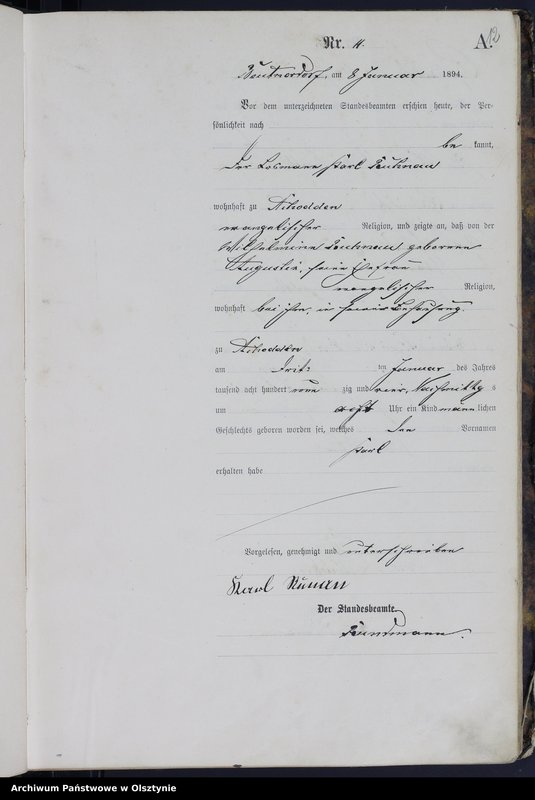 Nr. 11.
A. 12
am 8 Januar 1894.
Vor dem unterzeichneten Standesbeamten erschien heute, der Per-
sönlichkeit nach
be kannt,
der Losmann Karl
wohnhaft zu
evangelischer Religion, und zeigte an, daß von der
Wilhelmine geborene
Augustin, seine Ehefrau
evangelischer Religion,
wohnhaft bei ihm, in seiner Behausung
zu
am ten Januar des Jahres
tausend acht hundert neun zig und vier, Nachmittag s
um acht Uhr ein Kind männ lichen
Geschlechts geboren worden sei, welches den Vornamen
Karl
erhalten habe
Vorgelesen, genehmigt und unterschrieben
Karl
Der Standesbeamte.
Archiwum Państwowe w Olsztynie